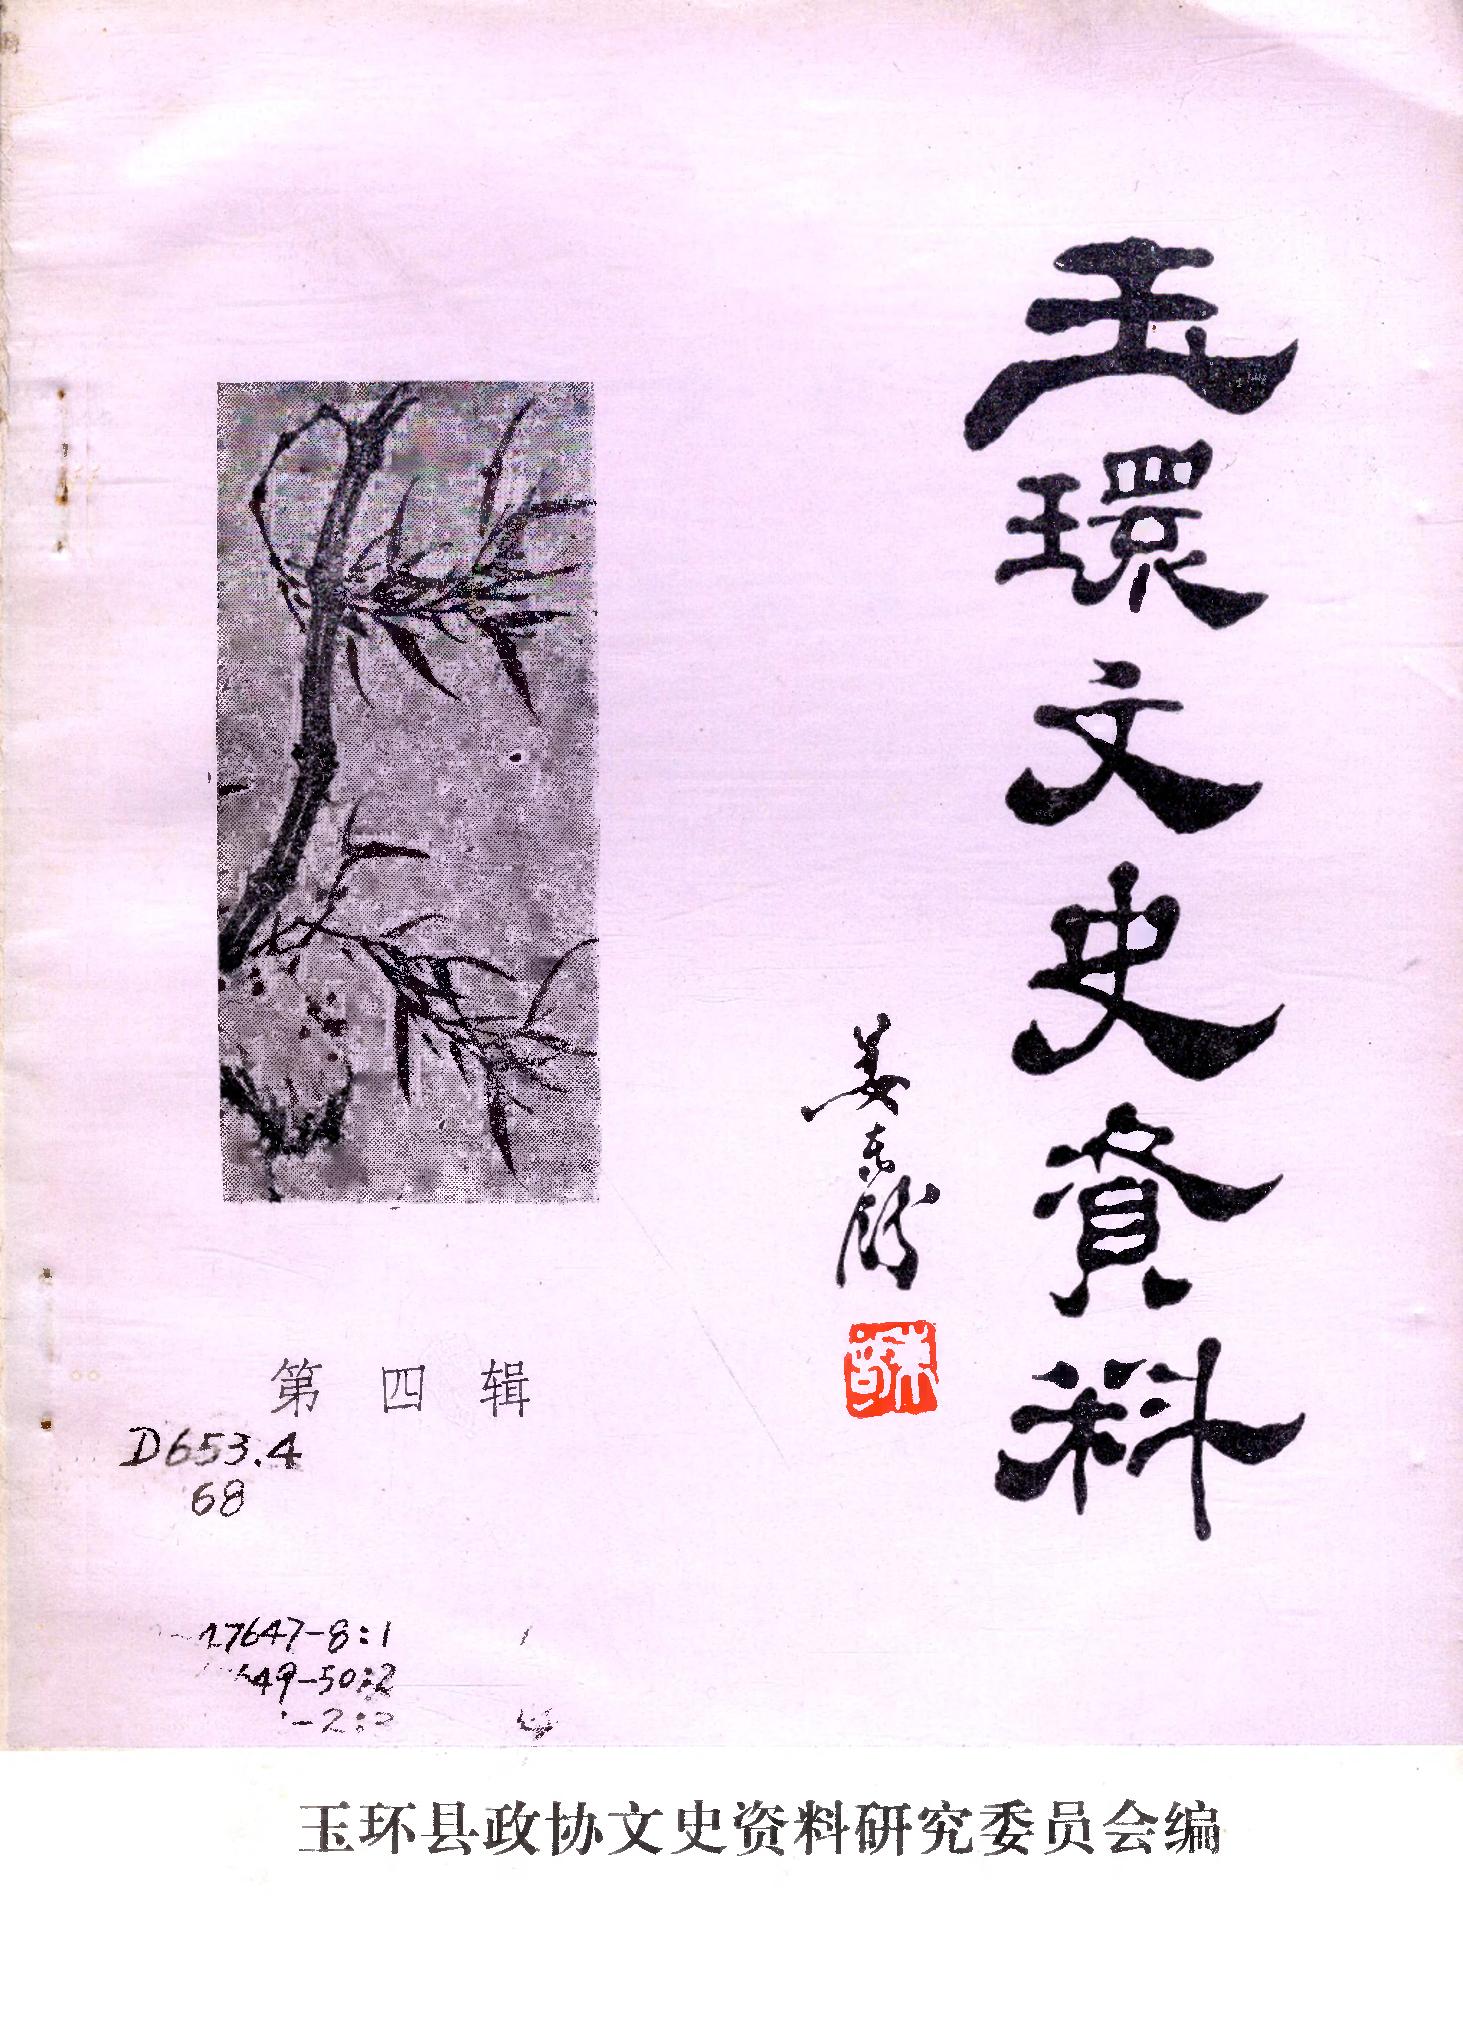 玉環文史資料
姜东舒
第四辑
D653.4
68
17647-8:1
49-50:2
-2:
玉环县政协文史资料研究委员会编